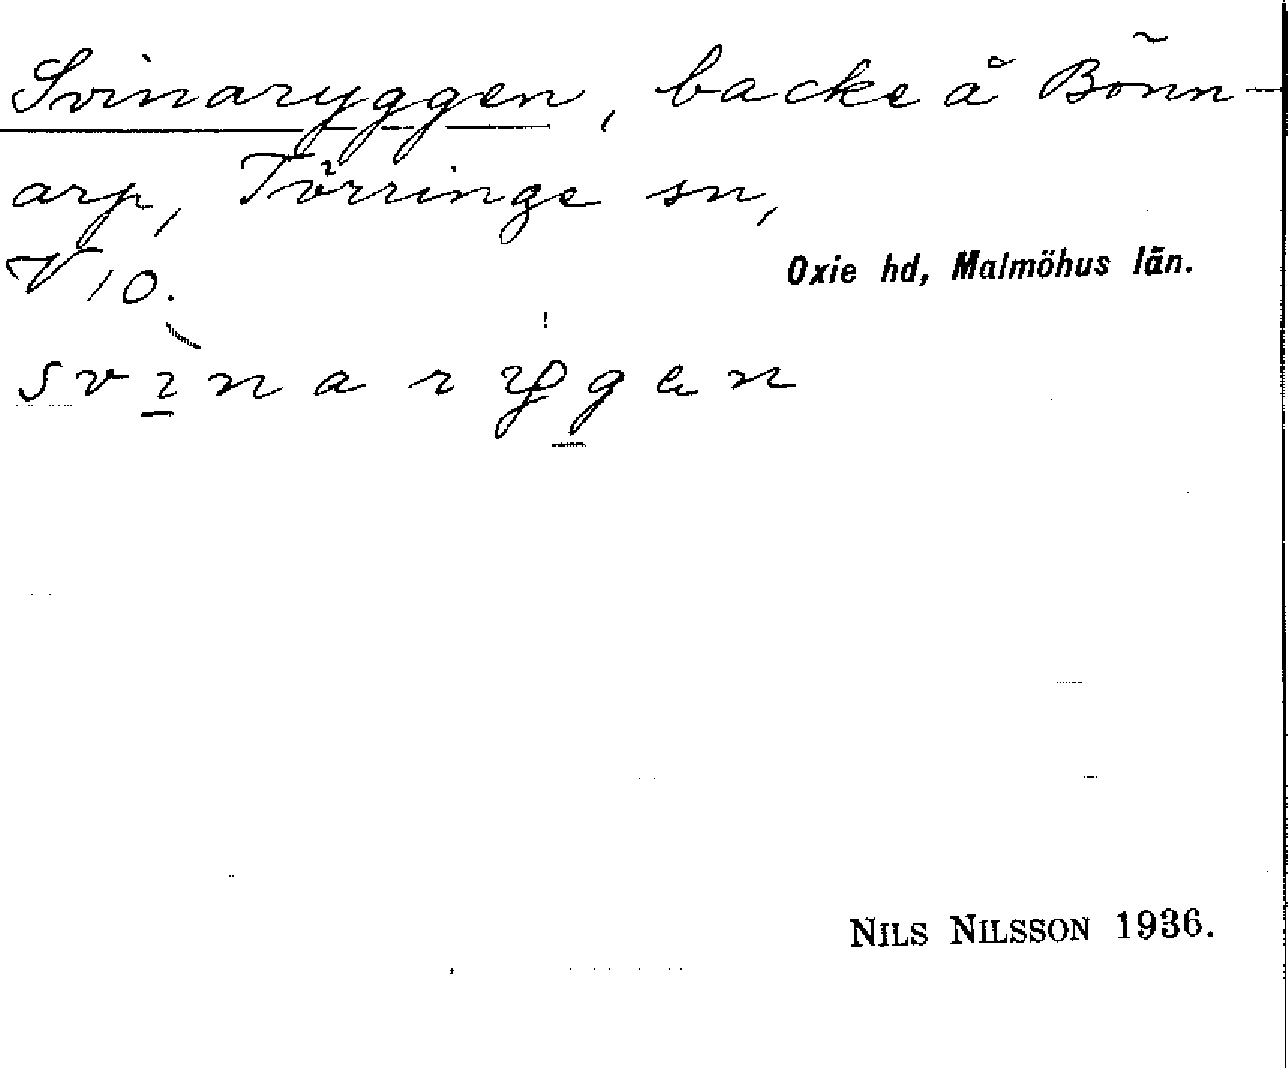 Svinaryggen, backe å Bönn-
arp, Törringe sn,
V 10.
Oxie hd, Malmöhus län.
NILS NILSSON 1936.